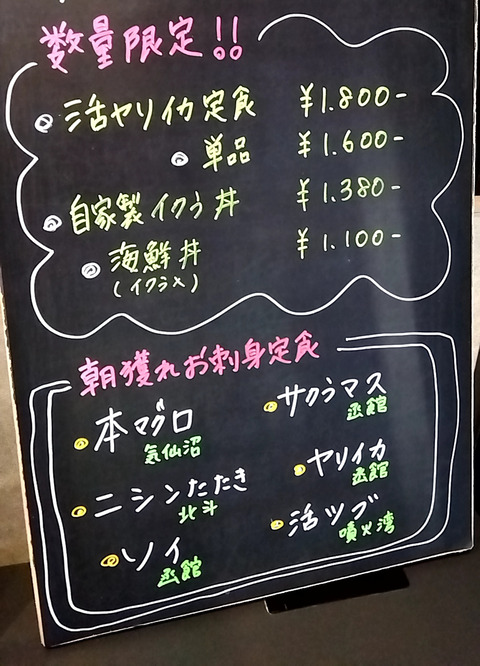 数量限定!!
活ヤリイカ定食 ¥1.800-
単品 ¥1.600-
自家製イクラ丼 ¥1.380-
海鮮丼 ¥1.100-
(イクラ×)
朝獲れお刺身定食
本マグロ
気仙沼
ニシンたたき
北斗
ソイ
函館
サクラマス
函館
ヤリイカ
函館
活ツブ
噴火湾